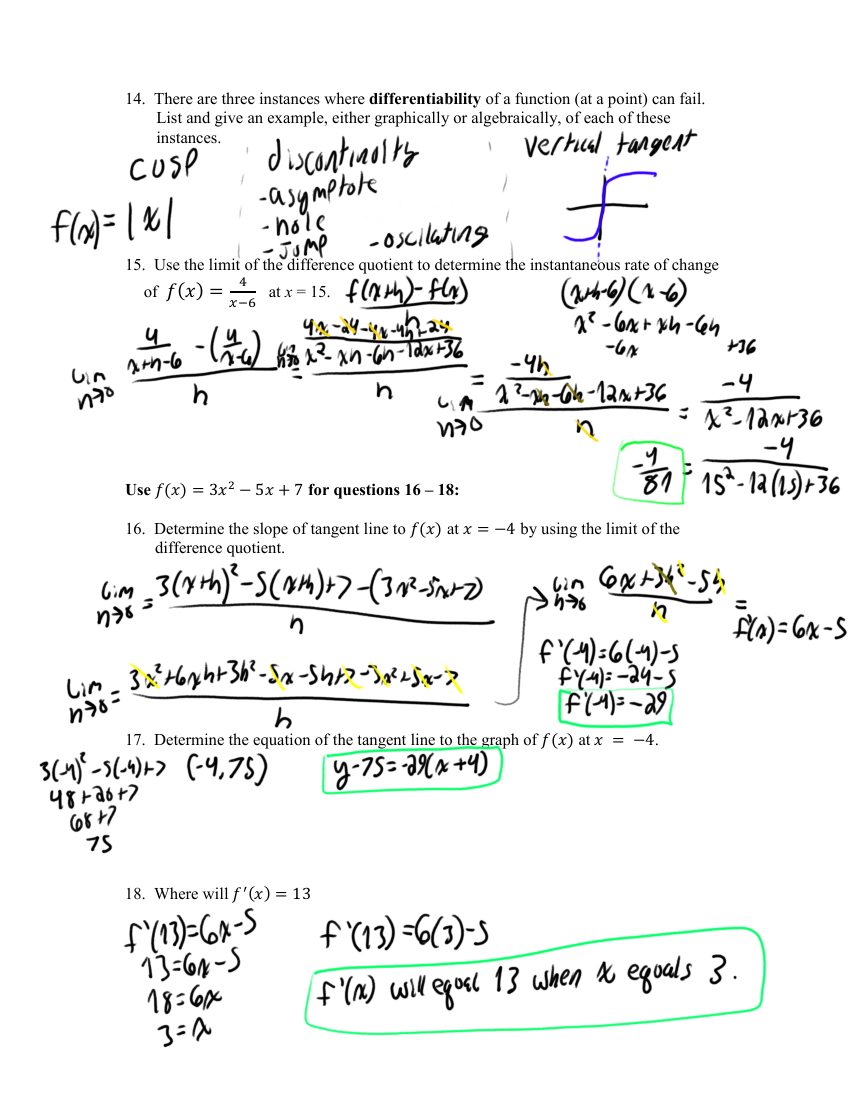 14. There are three instances where differentiability of a function (at a point) can fail.
List and give an example, either graphically or algebraically, of each of these
instances.
cusp
f(x)=|x|
discontinuity
-asymptote
-hole
-Jump -oscilating
vertical tangent
15. Use the limit of the difference quotient to determine the instantaneous rate of change
of f(x) = 4/(x−6) at x = 15.
(f(x+h)-f(x))/h
(x+h-6)(x-6)
x²-6x+xh-6h
-6x +36
lim h→0 (4/(x+h-6) - (4/(x-6)))/h
lim h→0 = ((4x-24-4x-4h+24)/(x²-xh-6h-12x+36))/h
= lim h→0 (-4h/(x²-xh-6h-12x+36))/h
= -4/(x²-12x+36)
= -4/(15²-12(15)+36)
-4/81
Use f(x) = 3x² − 5x + 7 for questions 16 – 18:
16. Determine the slope of tangent line to f(x) at x = −4 by using the limit of the
difference quotient.
lim h→0 = (3(x+h)²-5(x+h)+7-(3x²-5x+7))/h
lim h→0 = (3x²+6xh+3h²-5x-5h+7-3x²+5x-7)/h
lim h→0 (6x+3h²-5h)/h =
f'(x)=6x-5
f'(-4)=6(-4)-5
f'(-4)=-24-5
f'(-4)=-29
17. Determine the equation of the tangent line to the graph of f(x) at x = −4.
3(-4)²-5(-4)+7 (-4,75)
48+20+7
68+7
75
y-75=-29(x+4)
18. Where will f′(x) = 13
f'(13)=6x-5
13=6x-5
18=6x
3=x
f'(13)=6(3)-5
f'(x) will equal 13 when x equals 3.